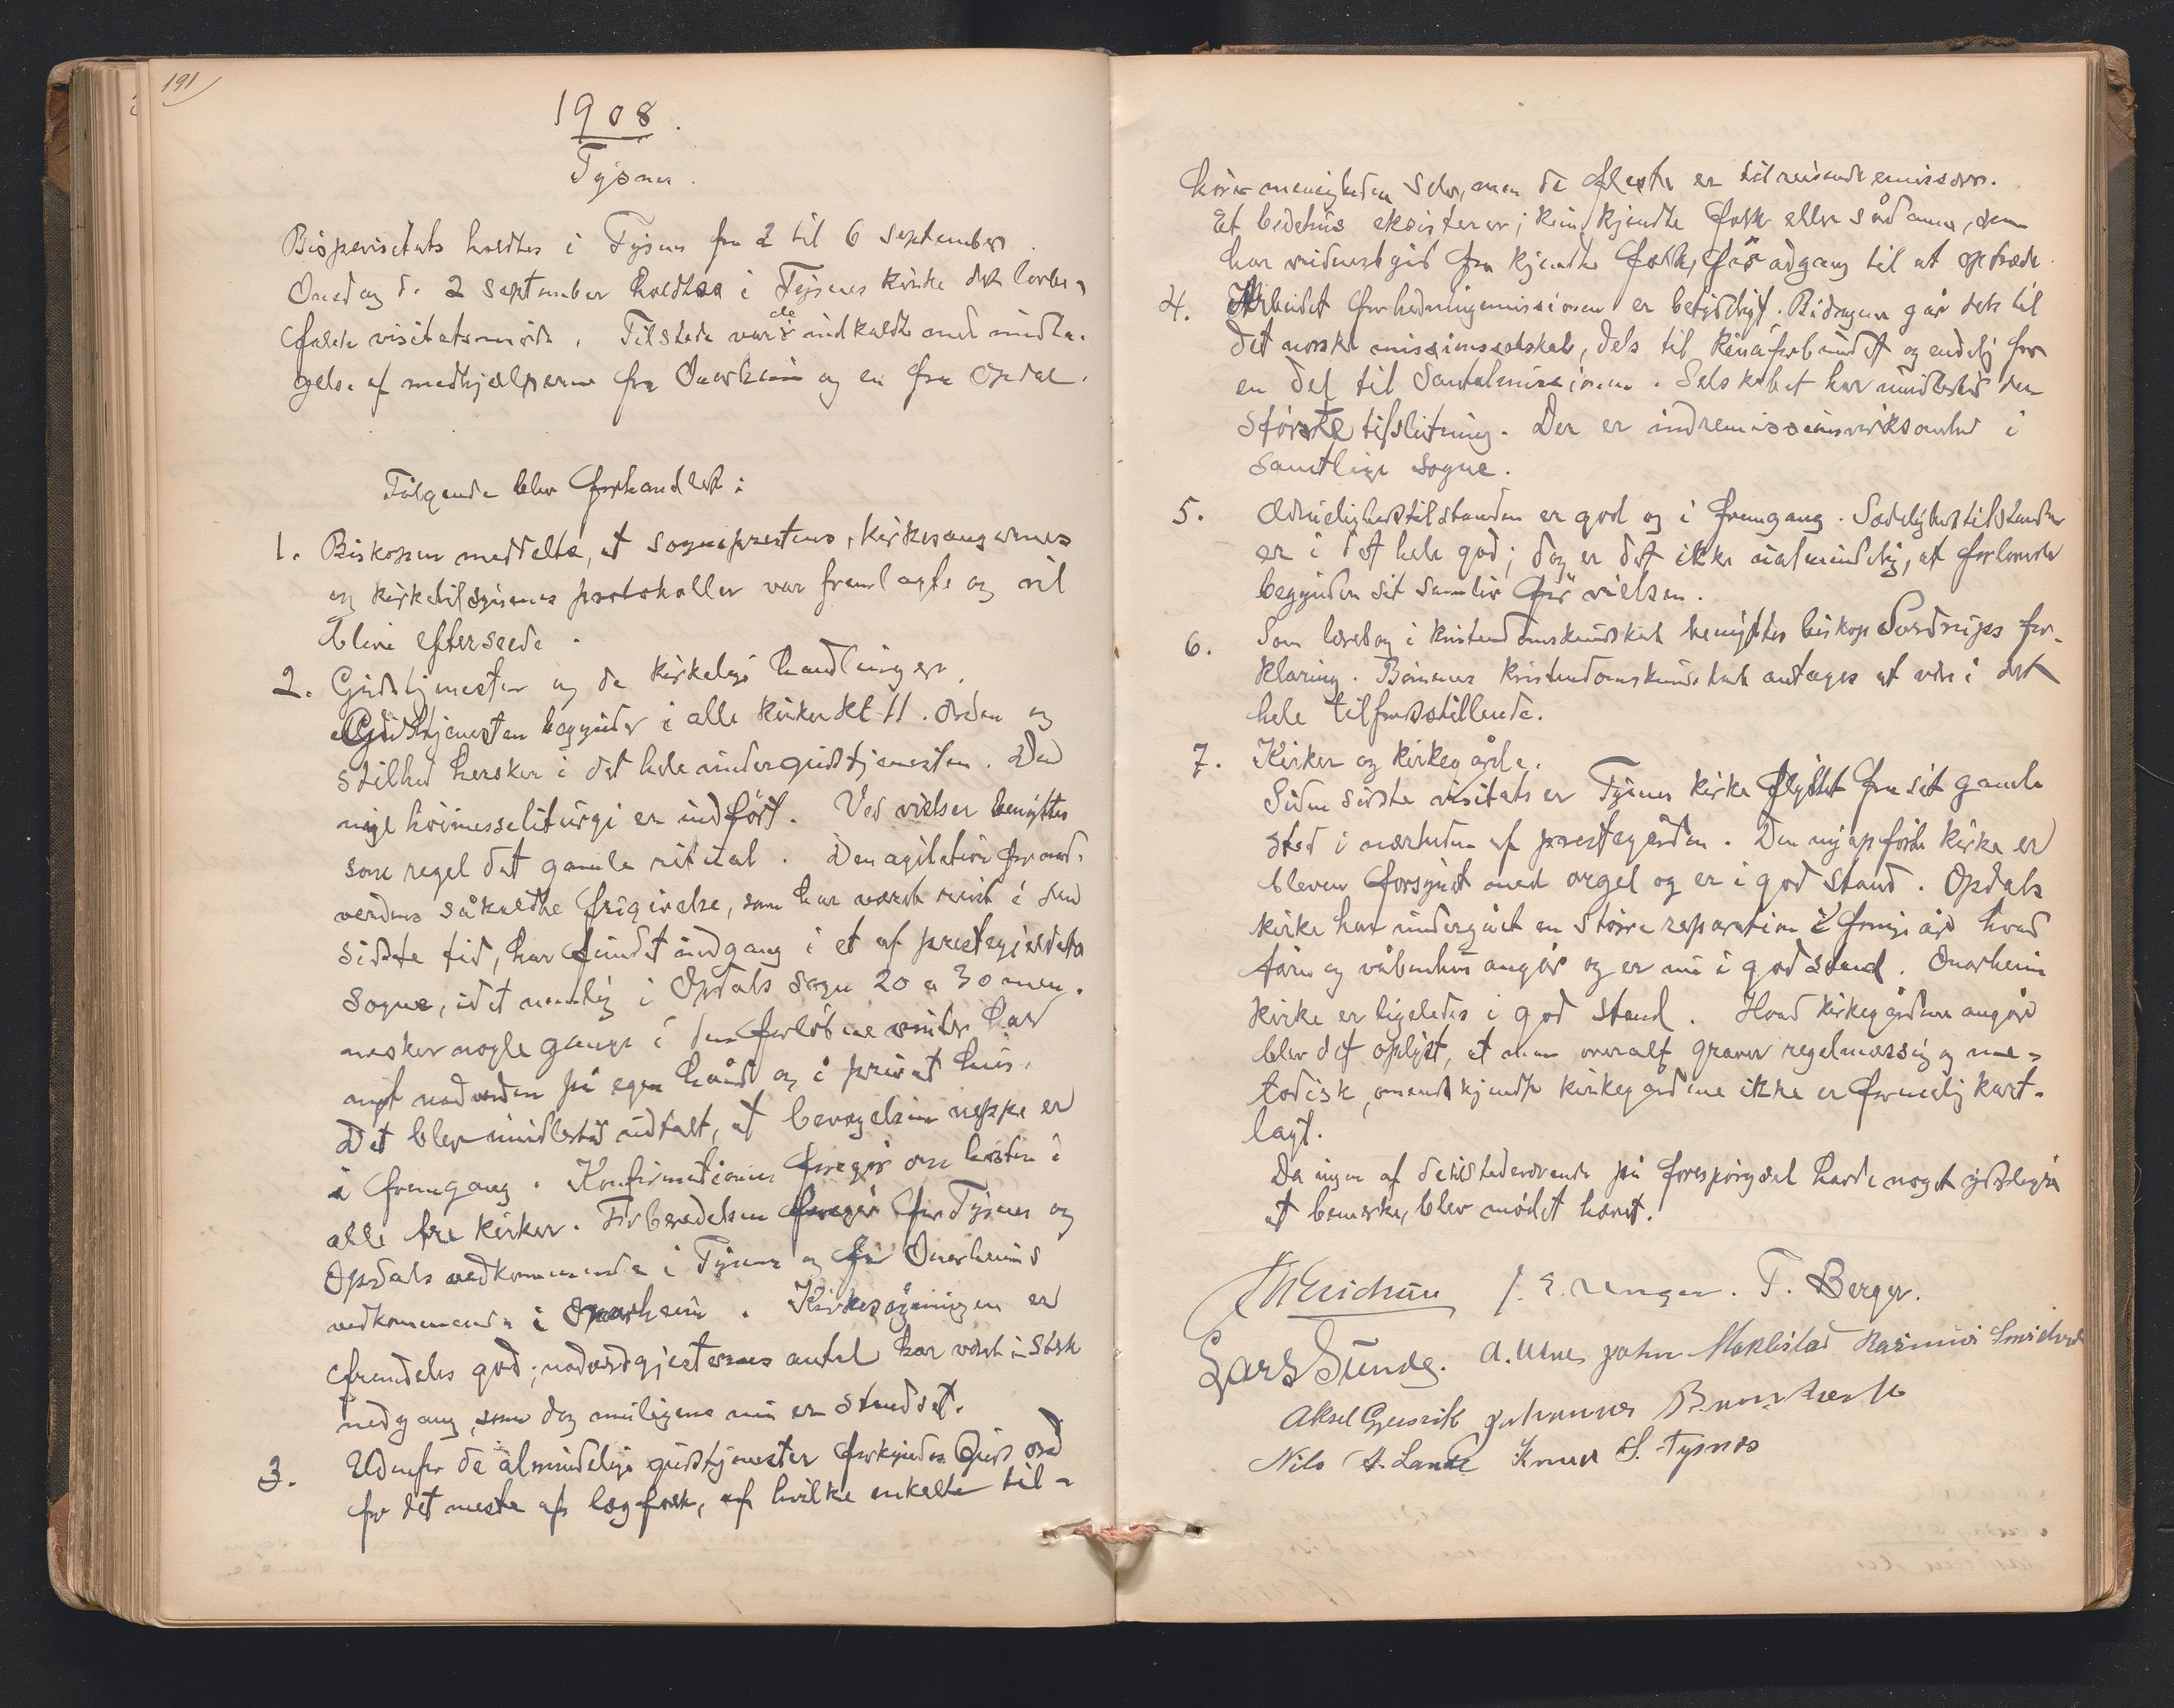 191
1908.
Tysnes.
Bispevisitats holdtes i Tysnes fra 2 til 6 september.
Onsdag d. 2 september holdtes i Tysnes kirke det lovbe-
falede visitatsmøde. Tilstede var de indkaldte med undta-
gelse af medhjælperne fra Onarheim og en fra Opdal.
Følgende blev forhandlet:
1. Biskopen meddelte, at sogneprestens, kirkesangernes
og kirketilsynenes protokoller var fremlagte og vil
blive efterseede.
2. Gudstjenesten og de kirkelige handlinger.
Gudstjenesten begynder i alle kirker kl 11. Orden og
stilhed hersker i det hele under gudstjenesten. Den
nye høimesseliturgi er indført. Ved vielser benyttes
som regel det gamle ritual. Den agitation for nad-
verdens såkaldte frigivelse, som har været reist i den
sidste tid, har fundet indgang i et af prestegjeldets
sogne, idet nemlig i Opdals sogn 20 a 30 men-
nesker nogle gange i den forløbne vinter har
nydt nadverden på egen hånd og i privat hus.
Det blev imidlertid udtalt, at bevægelsen neppe er
i fremgang. Konfirmationen foregår om høsten i
alle tre kirker. Forberedelsen foregår for Tysnes og
Opdals vedkommende i Tysnes og for Onarheims
vedkommende i Onarheim. Kirkesøgningen er
fremdeles god; nadverdgjesternes antal har været i sterk
nedgang, som dog muligens nu er standset.
3. Udenfor de almindelige gudstjenester forkyndes Guds ord
for det meste af lægfolk, af hvilke enkelte til-
hører menigheden selv, men de fleste er tilreisende emissærer.
Et bedehus eksisterer; kun kjendte folk eller sådanne, som
har vidnesbyrd fra kjendte folk, får adgang til at optræde.
4. Arbeidet for hedningemissionen er betydeligt. Bidragene går dels til
det norske missionsselskab, dels til Kinaforbundet og endelig for
en del til Santalmissionen. Selskabet har imidlertid den
største tilslutning. Der er indremissionsvirksomhed i
samtlige sogne.
5. Ædruelighedstilstanden er god og i fremgang. Sædelighedstilstanden
er i det hele god; dog er det ikke ualmindelig, at forlovede
begynder sit samliv før vielsen.
6. Som lærebog i kristendomskundskab benyttes biskop Sverdrups for-
klaring. Børnenes kristendomskundskab antages at være i det
hele tilfredsstillende.
7. Kirker og kirkegårde.
Siden sidste visitats er Tysnes kirke flyttet fra sit gamle
sted i nærheden af prestegården. Den nyopførte kirke er
bleven forsynet med orgel og er i god stand. Opdals
kirke har undergået en større reparation i forrige år hvad
tårn og våbenhus angår og er nu i god stand. Onarheim
kirke er ligeledes i god stand. Hvad kirkegårdene angår
blev det oplyst, at man overalt graver regelmæssig og me-
todisk, omendskjøndt kirkegårdene ikke er formelig kart-
lagt.
Da ingen af de tilstedeværende på forespørgsel havde noget yderligere
at bemerke, blev mødet hævet.
J. E. Unger. T. Berger.
Lars Sunde. A. Utne John Aksel Johannes
Nils A. Lande Knud S. Tysnes